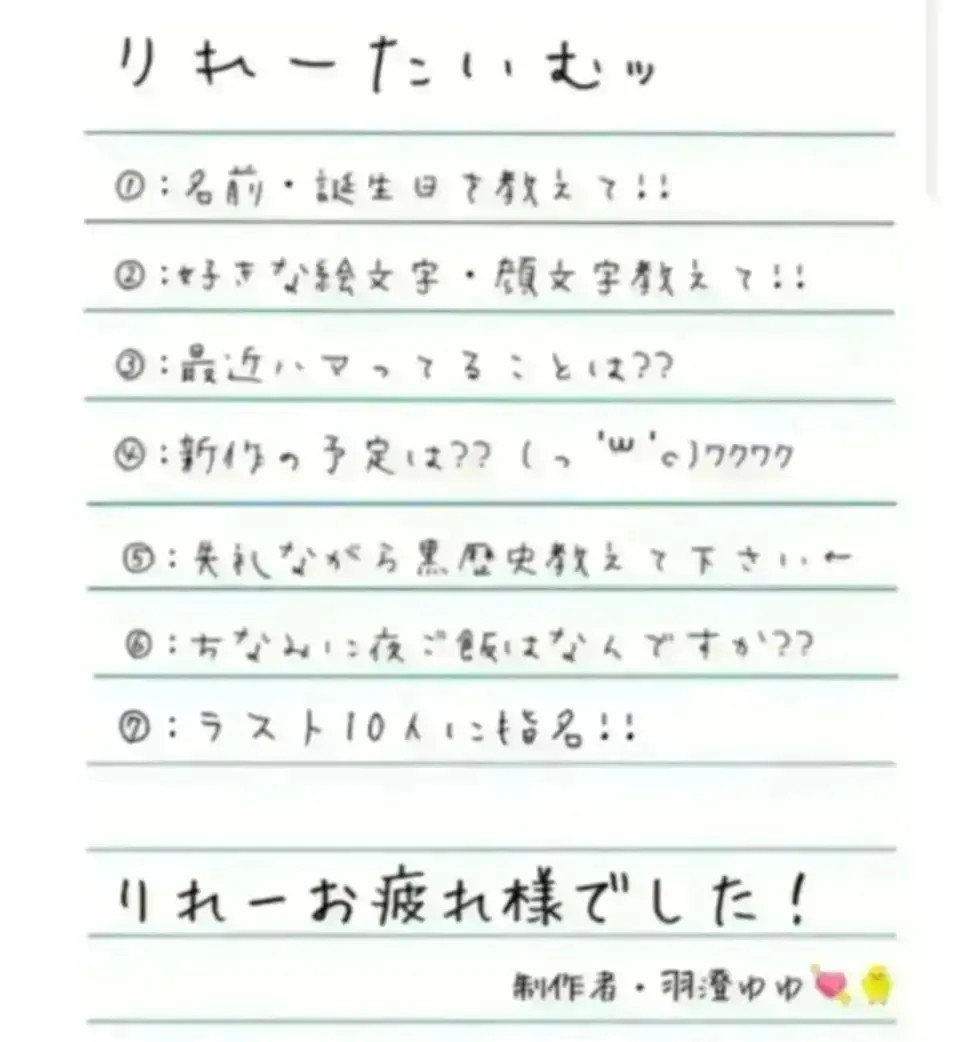 りれーたいむッ
①：名前・誕生日を教えて！！
②：好きな絵文字・顔文字教えて！！
③：最近ハマってることは？？
④：新作の予定は？？（っ 'ω' c）ワクワク
⑤：失礼ながら黒歴史教えて下さい←
⑥：ちなみに夜ご飯はなんですか？？
⑦：ラスト10人に指名！！
りれーお疲れ様でした！
制作者・羽澄ゆゆ💘🐤